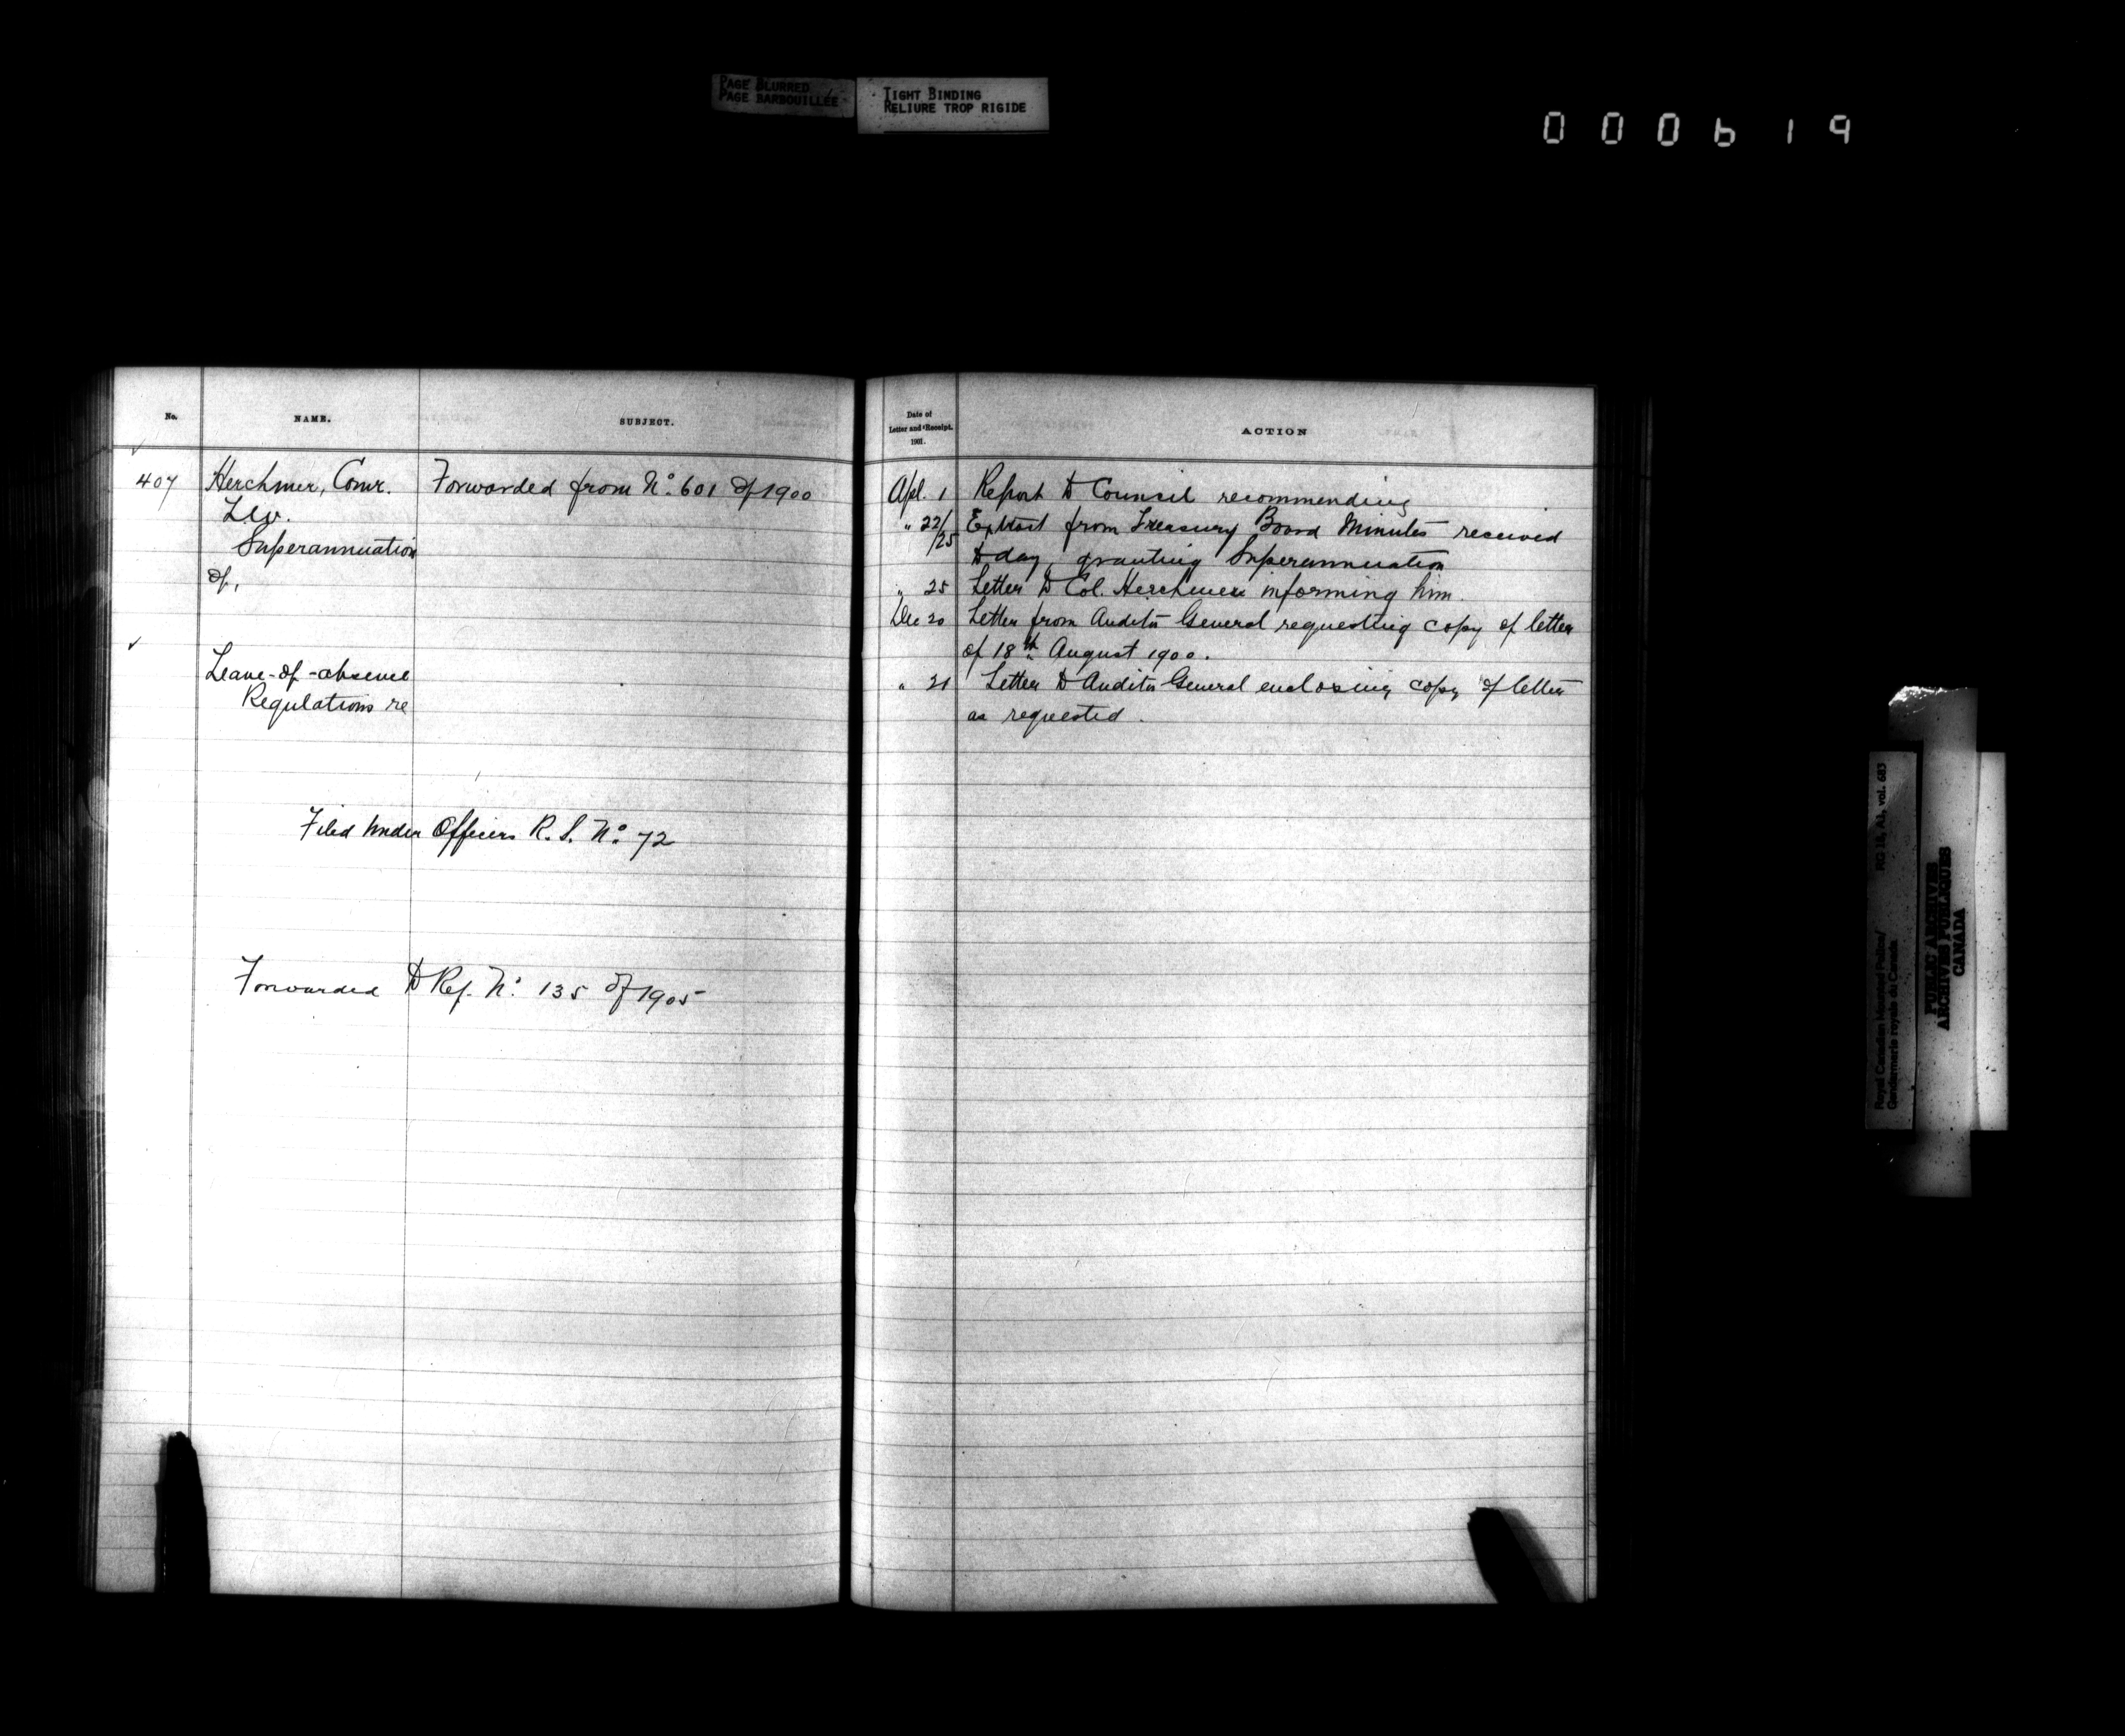 PAGE BLURRED
PAGE BARBOUILLÉE
TIGHT BINDING
RELIURE TROP RIGIDE
000619
No.
NAME.
SUBJECT.
407
Herchmer, Comr.
L.W.
Superannuation
of,
Forwarded from No. 601 of 1900
Leave-of-absence
Regulations re
Filed under Officers R. S. No. 72
Forwarded to Ref. No. 135 of 1905
Date of
Letter and Receipt.
1901.
ACTION
Apl. 1 Report to Council recommending
" 22/25 Extract from Treasury Board Minutes received
today, granting Superannuation
" 25 Letter to Col. Herchmer informing him.
Dec 20 Letter from Auditor General requesting copy of letter
of 18th August 1900.
" 21 Letter to Auditor General enclosing copy of letter
as requested.
Royal Canadian Mounted Police/
Gendarmerie royale du Canada
RG 18, A1, vol. 683
PUBLIC ARCHIVES
ARCHIVES PUBLIQUES
CANADA